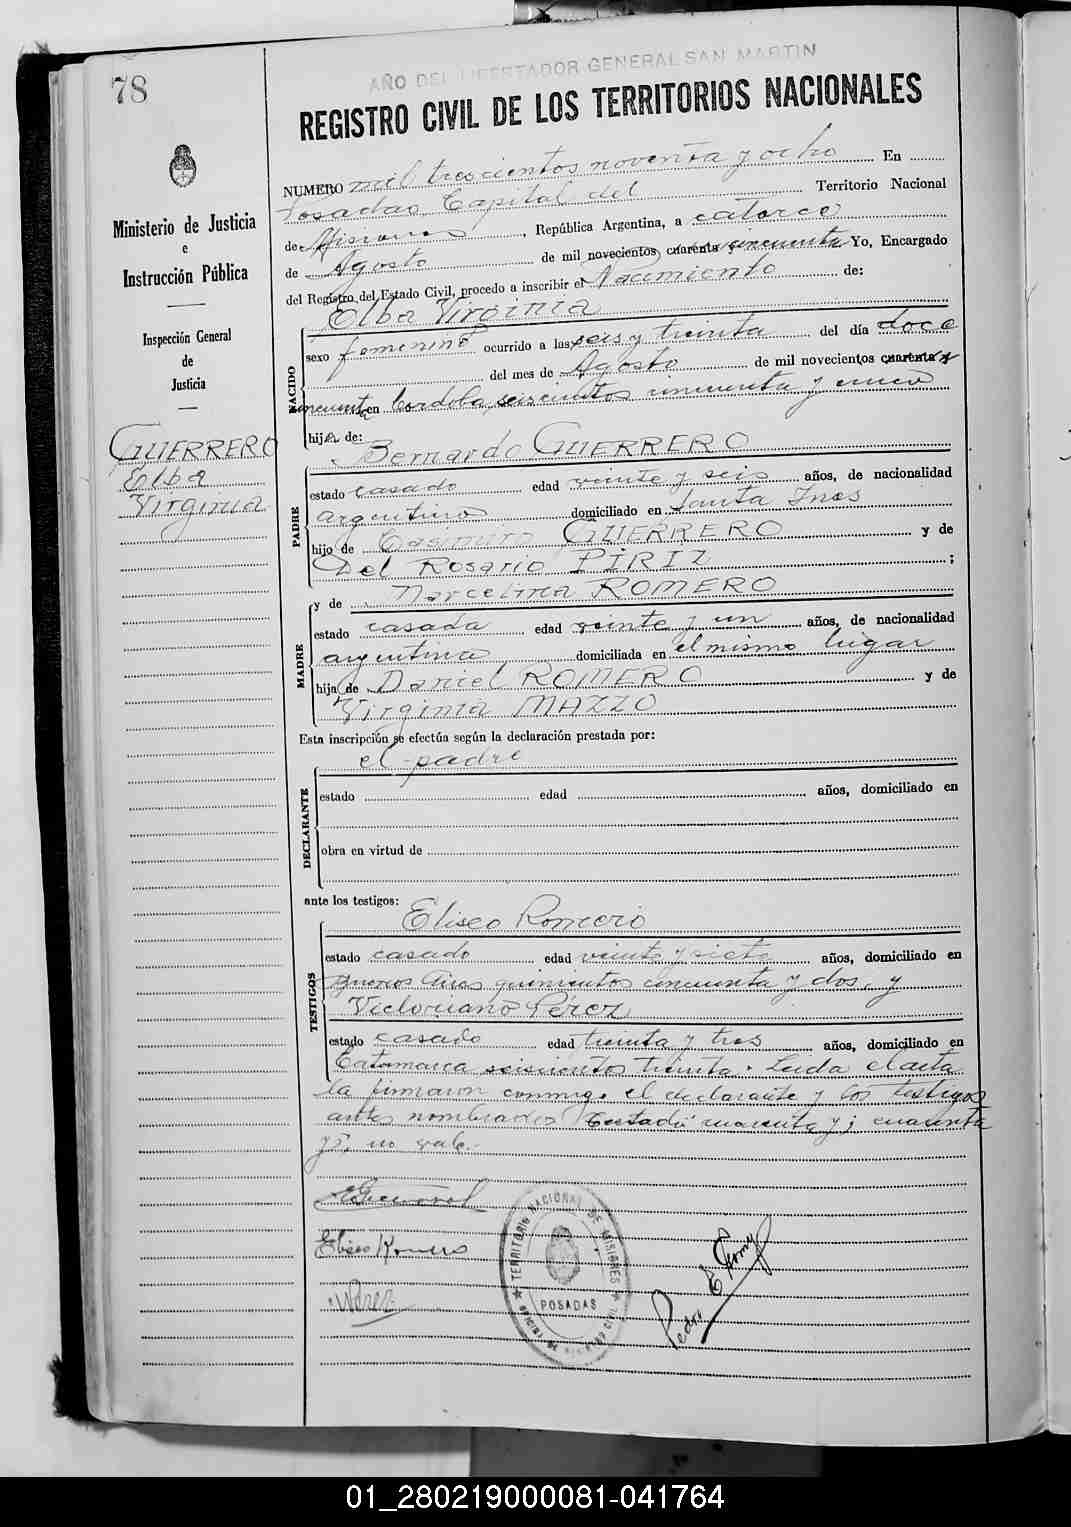 78
AÑO DEL LIBERTADOR GENERAL SAN MARTIN
REGISTRO CIVIL DE LOS TERRITORIOS NACIONALES
Ministerio de Justicia
e
Instrucción Pública
Inspección General
de
Justicia
GUERRERO
Elba
Virginia
NUMERO mil trescientos noventa y ocho En
Posadas, Capital del Territorio Nacional
de Misiones, República Argentina, a catorce
de Agosto de mil novecientos cuarenta y cincuenta Yo, Encargado
del Registro del Estado Civil, procedo a inscribir el Nacimiento de:
Elba Virginia
NACIDO
sexo femenino ocurrido a las seis y treinta del día doce
del mes de Agosto de mil novecientos cuarenta y
cincuenta en Cordoba seiscientos cincuenta y cinco
hija de:
Bernardo GUERRERO
PADRE
estado casado edad veinte y seis años, de nacionalidad
argentino domiciliado en Santa Ines
hijo de Casimiro GUERRERO y de
Del Rosario PIRIZ ;
y de Marcelina ROMERO
MADRE
estado casada edad veinte y un años, de nacionalidad
argentina domiciliada en el mismo lugar
hija de Daniel ROMERO y de
Virginia MAZZO
Esta inscripción se efectúa según la declaración prestada por:
el padre
DECLARANTE
estado edad años, domiciliado en
obra en virtud de
ante los testigos:
Eliseo Romero
TESTIGOS
estado casado edad veinte y siete años, domiciliado en
Buenos Aires quinientos cincuenta y dos, y
Victoriano Pérez
estado casado edad treinta y tres años, domiciliado en
Catamarca seiscientos treinta. Leida el acta
la firmaron conmigo el declarante y los testigos
antes nombrados Testado: cuarenta y; cuarenta
y; no vale.-
Eliseo Romero
VPerez
TERRITORIO NACIONAL DE MISIONES
POSADAS
Pedro E
01_280219000081-041764